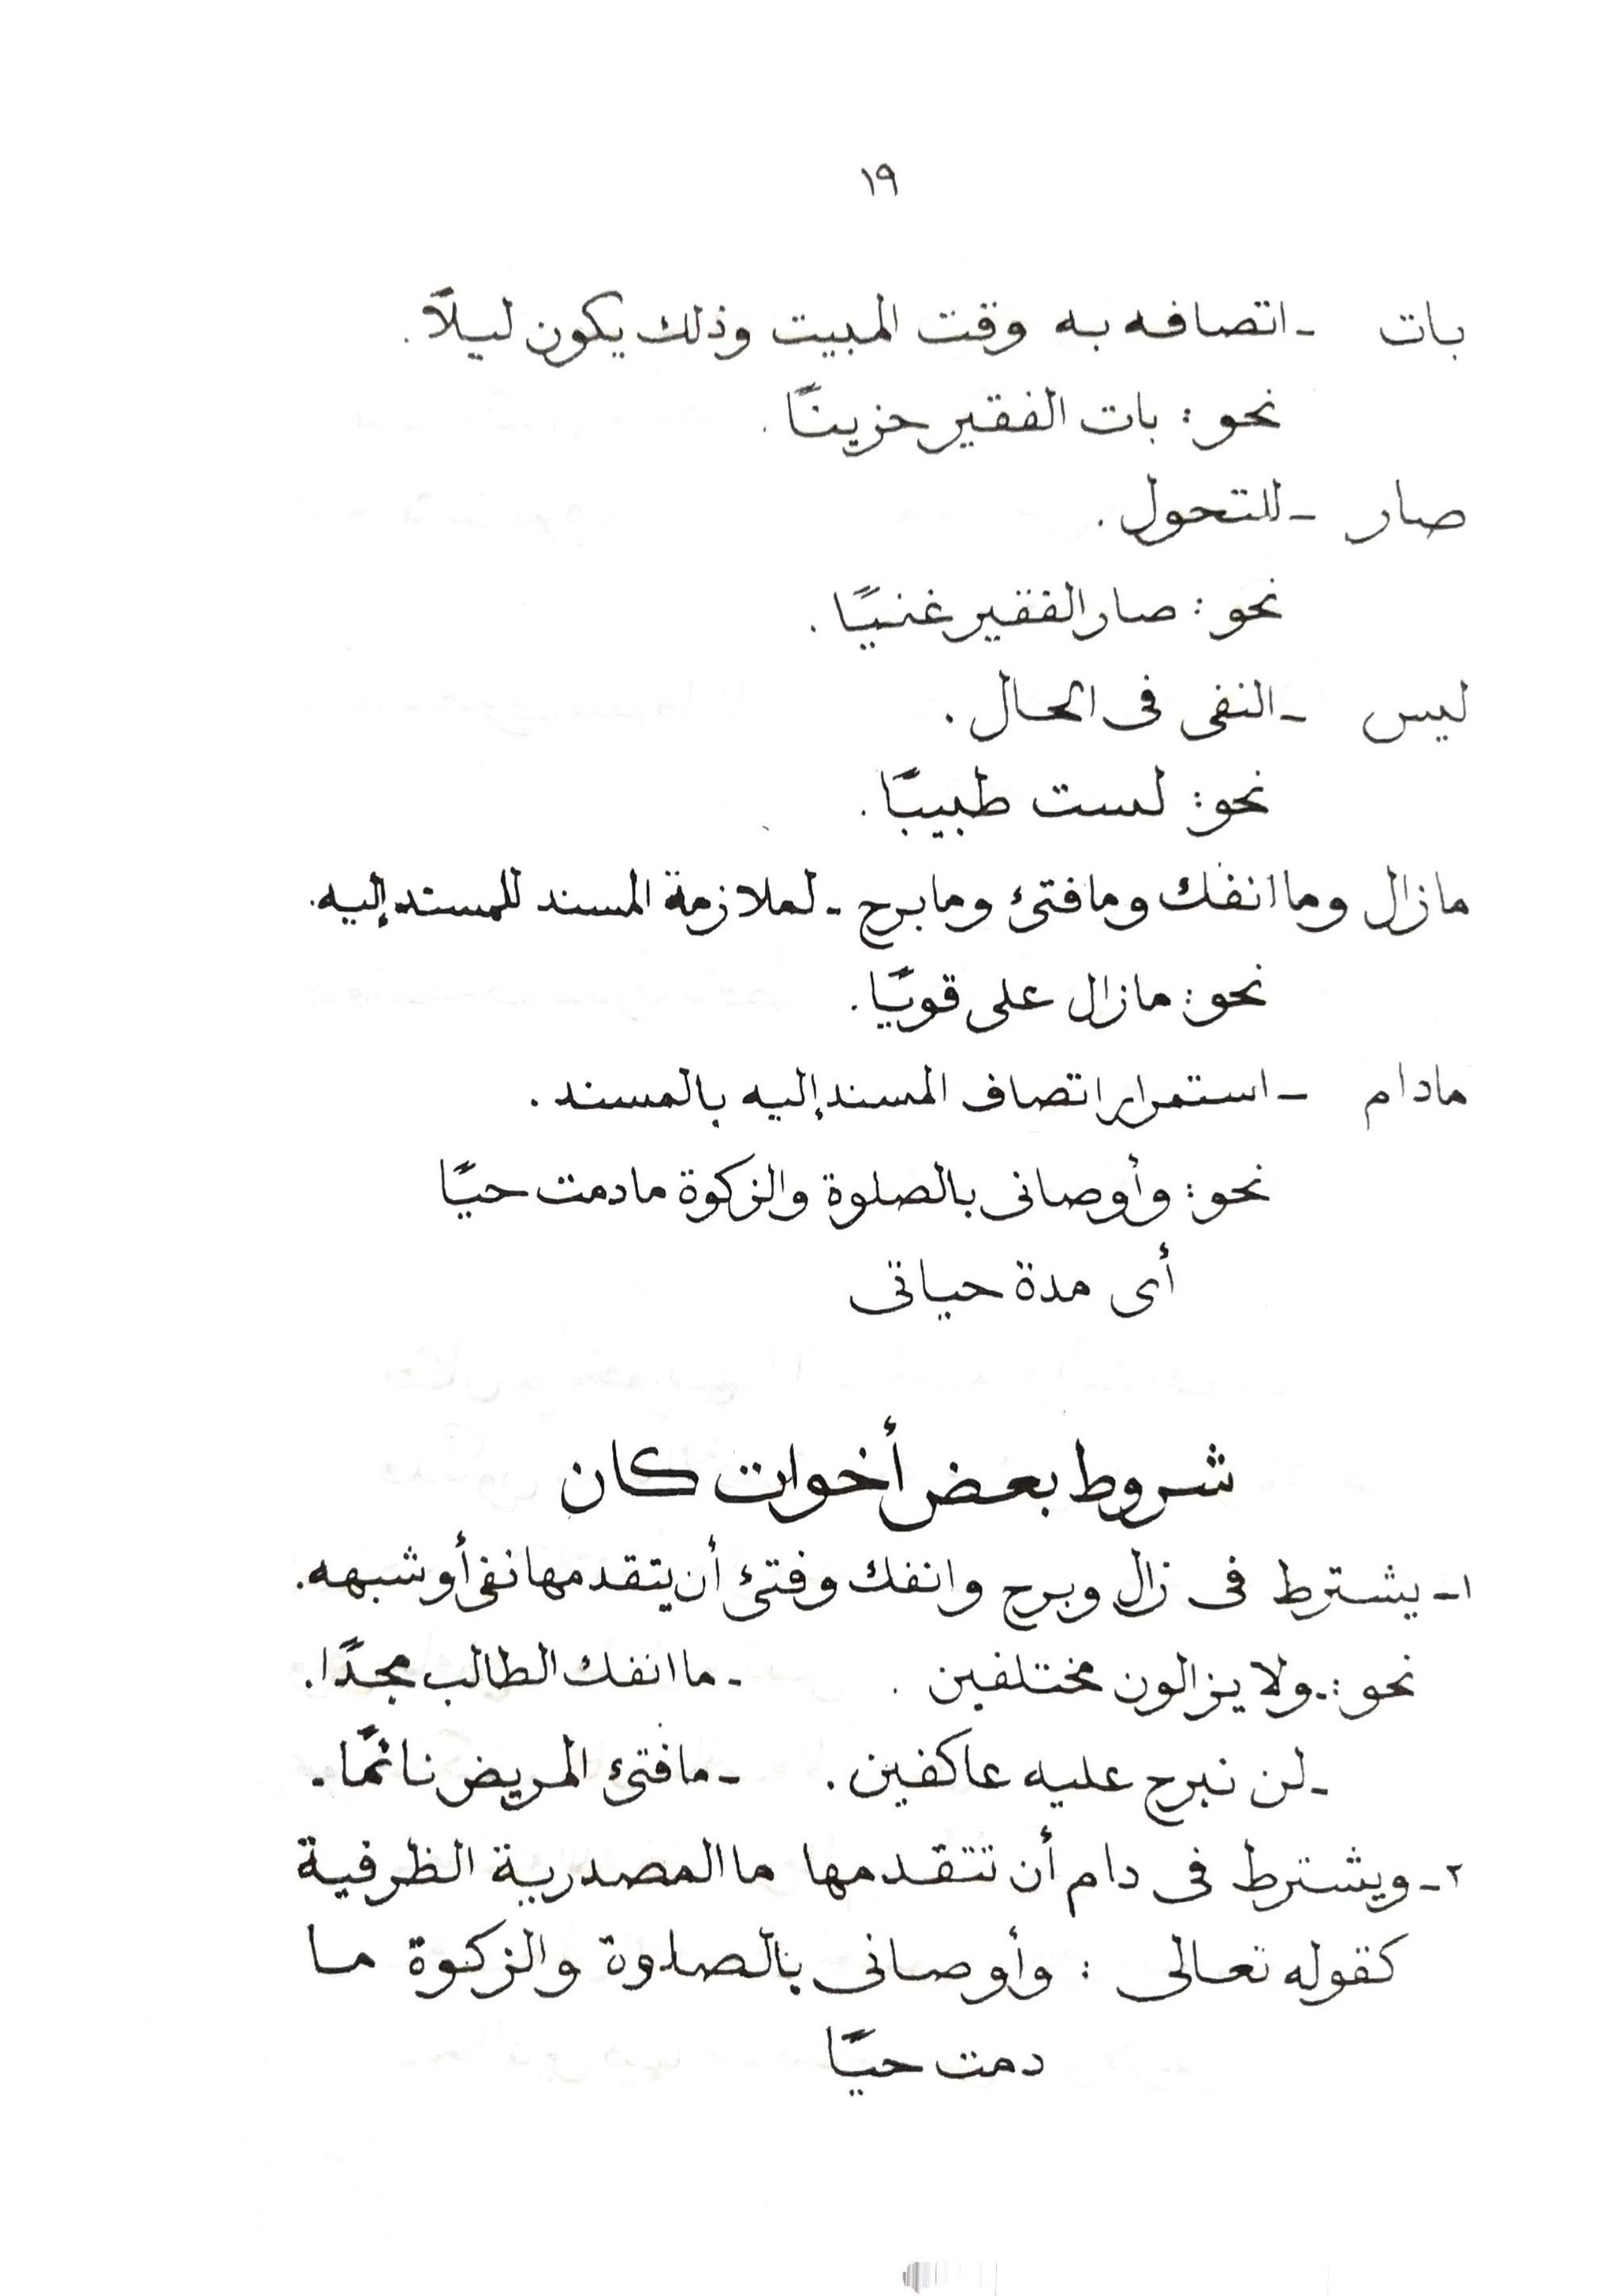 ١٩
بات - اتصافه به وقت المبيت وذلك يكون ليلاً.
نحو : بات الفقير حزينًا .
صار - للتحول .
نحو : صار الفقير غنيًا .
ليس - النفى فى الحال .
نحو : لست طبيبًا .
مازال وما انفك ومافتئ ومابرح - لملازمة المسند للمسند إليه.
نحو : مازال على قويًا .
مادام - استمرار اتصاف المسند إليه بالمسند .
نحو : وأوصانى بالصلوة والزكوة مادمت حيًا
أى مدة حياتى
شروط بعض أخوات كان
١- يشترط فى زال وبرح وانفك وفتئ أن يتقدمها نفى أو شبهه.
نحو :- ولا يزالون مختلفين . - ما انفك الطالب مجدًا .
- لن نبرح عليه عاكفين . - مافتئ المريض نائمًا .
٢- ويشترط فى دام أن تتقدمها ما المصدرية الظرفية
كقوله تعالى : وأوصانى بالصلوة والزكوة ما
دمت حيًا